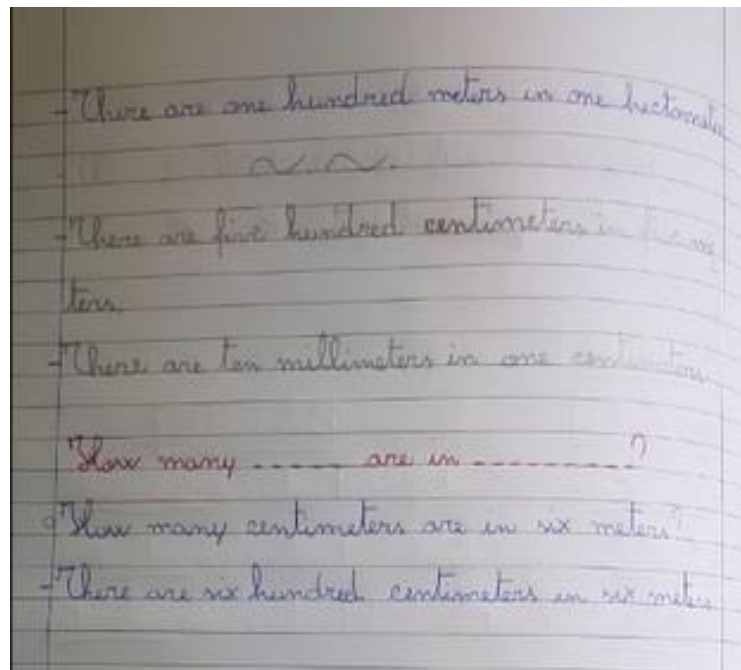 - There are one hundred meters in one hectometer
- There are five hundred centimeters in five me
ters.
- There are ten millimeters in one centimeters.
How many ----- are in ---------?
How many centimeters are in six meters?
- There are six hundred centimeters in six meters